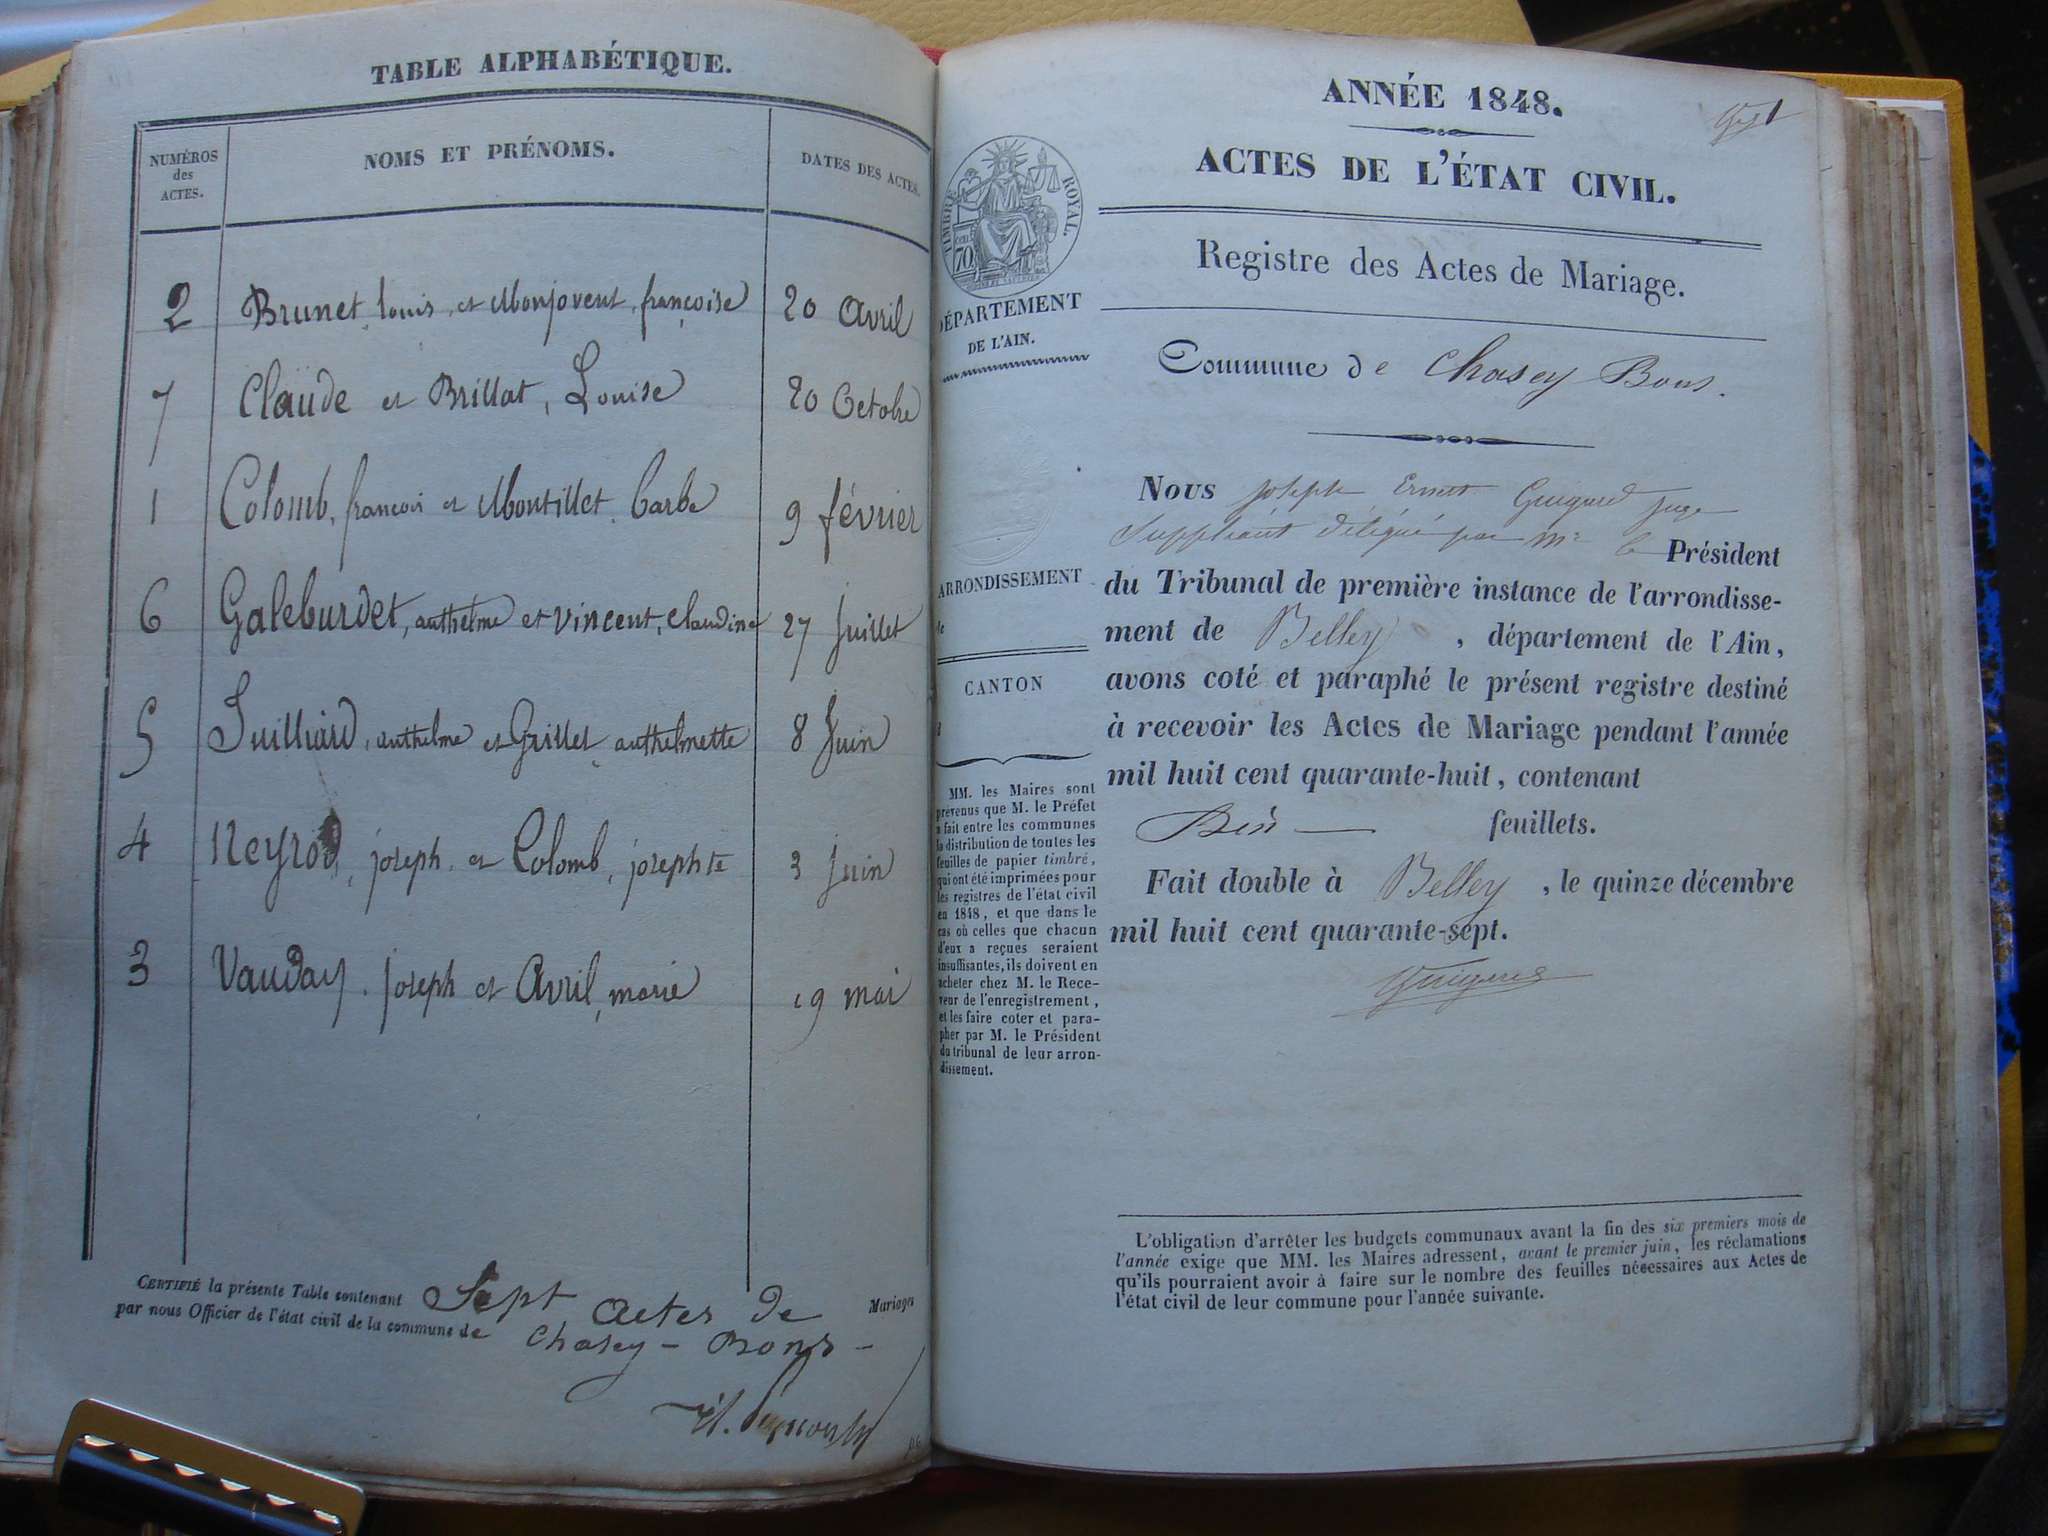 TABLE ALPHABÉTIQUE.
NUMÉROS des ACTES.
NOMS ET PRÉNOMS.
DATES DES ACTES.
2 Brunet, louis, et Monjovent, françoise 20 Avril
7 Claude et Brillat, Louise 20 Octobre
1 Colomb, françois et Montillet Barbe 9 février
6 Galeburdet, anthelme et Vincent, Claudine 27 Juillet
5 Juilliard, anthelme et Grillet anthelmette 8 Juin
4 Neyrod, joseph et Colomb, josephte 3 juin
3 Vauday. joseph et Avril, marie 19 mai
CERTIFIÉ la présente Table contenant Sept Actes de Mariages
par nous Officier de l'état civil de la commune de Chasey - Bons -
ANNÉE 1848.
1
ACTES DE L'ÉTAT CIVIL.
TIMBRE ROYAL.
70
Registre des Actes de Mariage.
DÉPARTEMENT
DE L'AIN.
Commune de Chasey Bons.
Nous Joseph Ernest Guigard juge
Suppléant délégué par Mr le Président
du Tribunal de première instance de l'arrondisse-
ment de Belley, département de l'Ain,
avons coté et paraphé le présent registre destiné
à recevoir les Actes de Mariage pendant l'année
mil huit cent quarante-huit, contenant
feuillets.
Fait double à Belley, le quinze décembre
mil huit cent quarante-sept.
Guigard
ARRONDISSEMENT
CANTON
MM. les Maires sont
prévenus que M. le Préfet
a fait entre les communes
la distribution de toutes les
feuilles de papier timbré,
qui ont été imprimées pour
les registres de l'état civil
en 1848, et que dans le
cas où celles que chacun
d'eux a reçues seraient
insuffisantes, ils doivent en
acheter chez M. le Rece-
veur de l'enregistrement,
et les faire coter et para-
pher par M. le Président
du tribunal de leur arron-
dissement.
L'obligation d'arrêter les budgets communaux avant la fin des six premiers mois de
l'année exige que MM. les Maires adressent, avant le premier juin, les réclamations
qu'ils pourraient avoir à faire sur le nombre des feuilles nécessaires aux Actes de
l'état civil de leur commune pour l'année suivante.